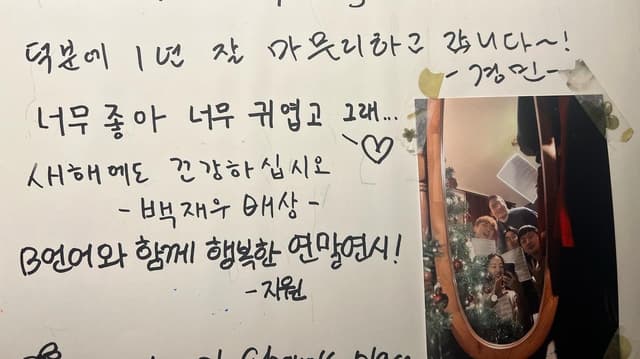 덕분에 1년 잘 마무리하고 갑니다~!
-경민-
너무 좋아 너무 귀엽고 그래...
♡
새해에도 건강하십시오
-백재우 배상-
B언어와 함께 행복한 연말연시!
-지원